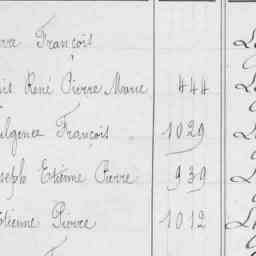 François
René Pierre Marie 444
François 1029
Joseph Etienne Pierre 939
Etienne Pierre 1012